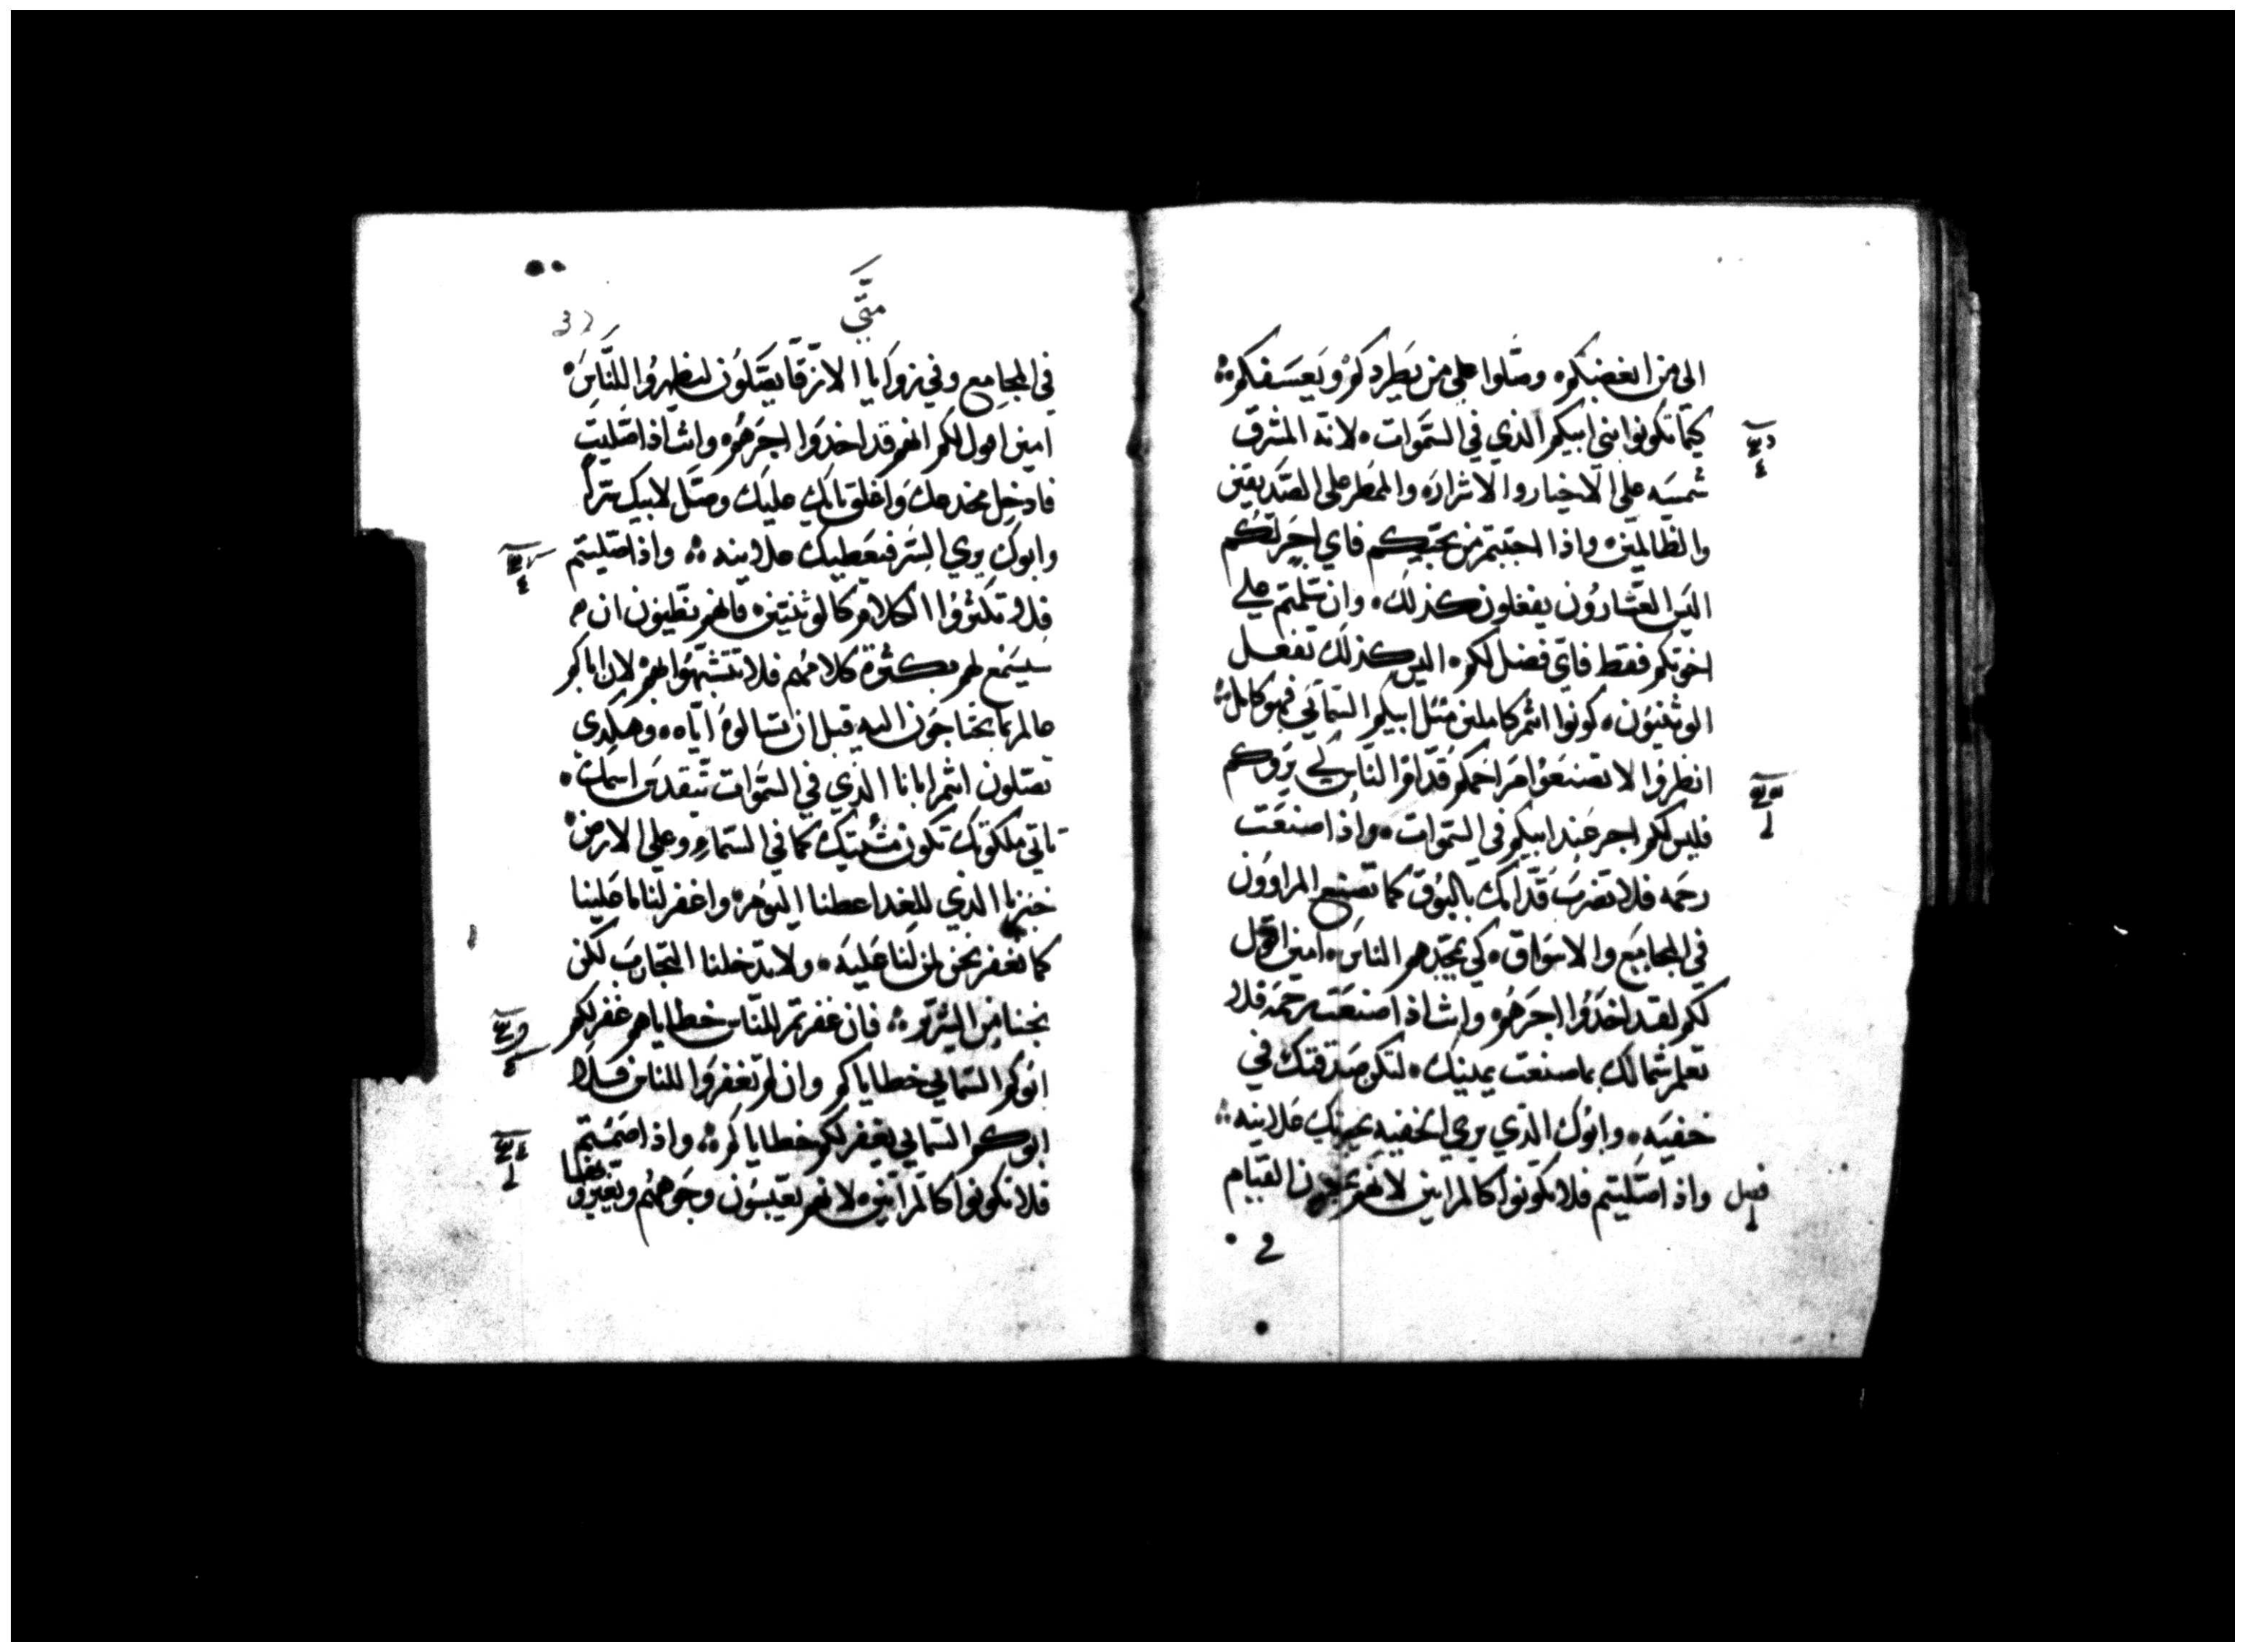 الي من ابغضكم، وصلوا على من يطردكم ويعسفكم
كيما تكونوا بني ابيكم الذي في السموات، لانه المشرق
شمسه على الاخيار والاشرار، والممطر على الصديقين
والظالمين، واذا احببتم من يحبكم فاي اجر لكم
اليس العشارون يفعلون كذلك، وان سلمتم على
اخوتكم فقط فاي فضل لكم، اليس كذلك تفعل
الوثنيون، كونوا انتم كاملين مثل ابيكم السمائي فهو كامل
انظروا لا تصنعوا مراحمكم قدام الناس لكي يروكم
فليس لكم اجر عند ابيكم في السموات، واذا صنعت
رحمه فلا تضرب قدامك بالبوق كما تصنع المراوون
في المجامع والاسواق، كي يمجدهم الناس، امين اقول
لكم لقد اخذوا اجرهم، وانت اذا صنعت رحمه فلا
تعلم شمالك بما صنعت يمينك، لتكن صدقتك في
خفيه، وابوك الذي يري الخفيه يجزيك علانيه
فصل واذا صليتم فلا تكونوا كالمرايين لانهم يحبون القيام
في
متى
في المجامع وفي زوايا الازقا يصلون ليظهروا للناس
امين اقول لكم انهم قد اخذوا اجرهم، وانت اذا صليت
فادخل مخدعك واغلق بابك عليك وصل لابيك سرا
وابوك يري السر فيعطيك علانيه واذا صليتم
فلا تكثروا الكلام كالوثنيين، فانهم يظنون ان
سيسمع لهم بكثرة كلامهم فلا تتشبهوا بهم، لان اباكم
عالم بما تحتاجون اليه قبل ان تسالوه اياه، وهكدي
تصلون انتم ابانا الذي في السموات تتقدس اسمك،
تاتي ملكوتك تكون مشيتك كما في السماء وعلى الارض
خبزنا الذي للغد اعطنا اليوم، واغفر لنا ما علينا
كما نغفر نحن لمن لنا عليه، ولا تدخلنا التجارب لكن
نجنا من الشرير، فان غفرتم للناس خطاياهم غفر لكم
ابوكم السمايي خطاياكم وان لم تغفروا للناس فلا
ابوكم السمايي يغفر لكم خطاياكم، واذا صمتم
فلا تكونوا كالمرايين، لانهم يعبسون وجوههم ويغيروا